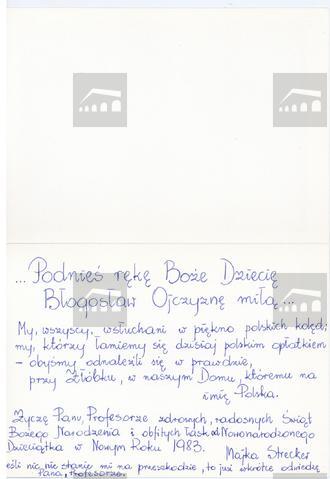 ...Podnieś rękę Boże Dziecię
Błogosław Ojczyznę miłą...
My, wszyscy, wsłuchani w piękno polskich kolęd;
my, którzy łamiemy się dzisiaj polskim opłatkiem
- obyśmy odnaleźli się w prawdzie,
przy Żłóbku, w naszym Domu, któremu na
imię Polska.
Życzę Panu, Profesorze zdrowych, radosnych Świąt
Bożego Narodzenia i obfitych łask od Nowonarodzonego
Dzieciątka w Nowym Roku 1983.
Majka Strecker
eśli nic nie stanie mi na przeszkodzie, to już wkrótce odwiedzę
Pana, Profesorze.